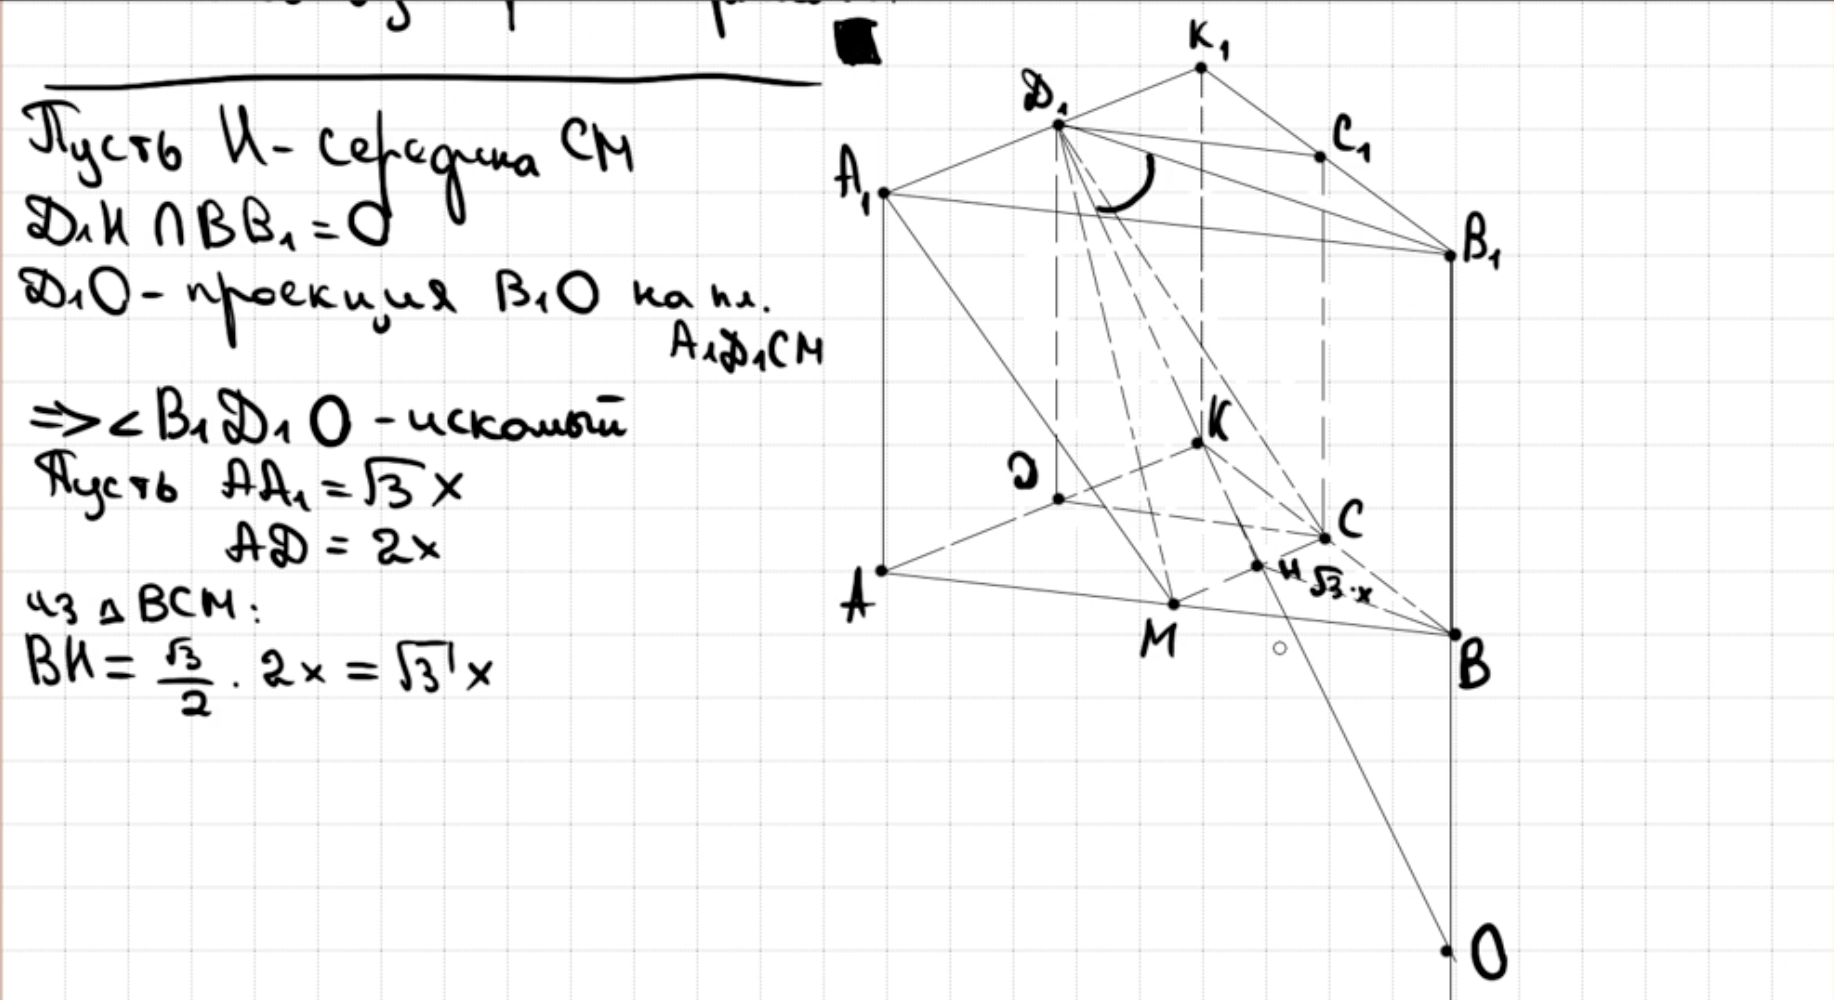 Пусть H - середина CM
D₁H ∩ BB₁ = O
D₁O - проекция B₁O на пл.
A₁D₁CM
=> < B₁D₁O - искомый
Пусть AA₁ = √3 x
AD = 2x
из △ BCM:
BH = √3/2 · 2x = √3 x
K₁
D₁
C₁
A₁
B₁
K
D
C
H √3·x
A
M
B
O